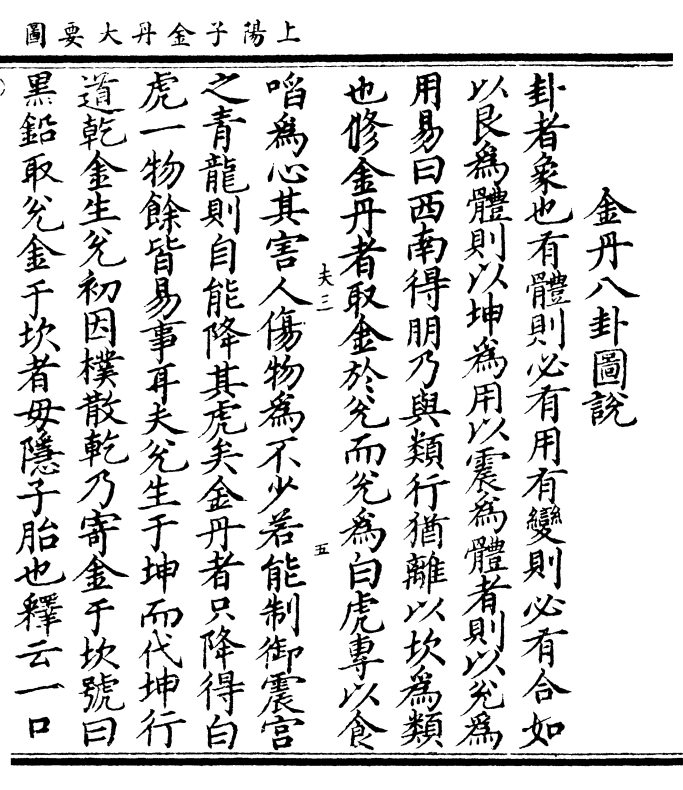 上陽子金丹大要圖
金丹八卦圖說
卦者象也有體則必有用有變則必有合如
以艮為體則以坤為用以震為體者則以兊為
用易曰西南得朋乃與類行猶離以坎為類
也修金丹者取金於兊而兊為白虎專以食
啗為心其害人傷物為不少若能制御震宮
之青龍則自能降其虎矣金丹者只降得白
虎一物餘皆易事耳夫兊生于坤而代坤行
道乾金生兊初因樸散乾乃寄金于坎號曰
黑鉛取兊金于坎者母隱子胎也釋云一口
夫三
五